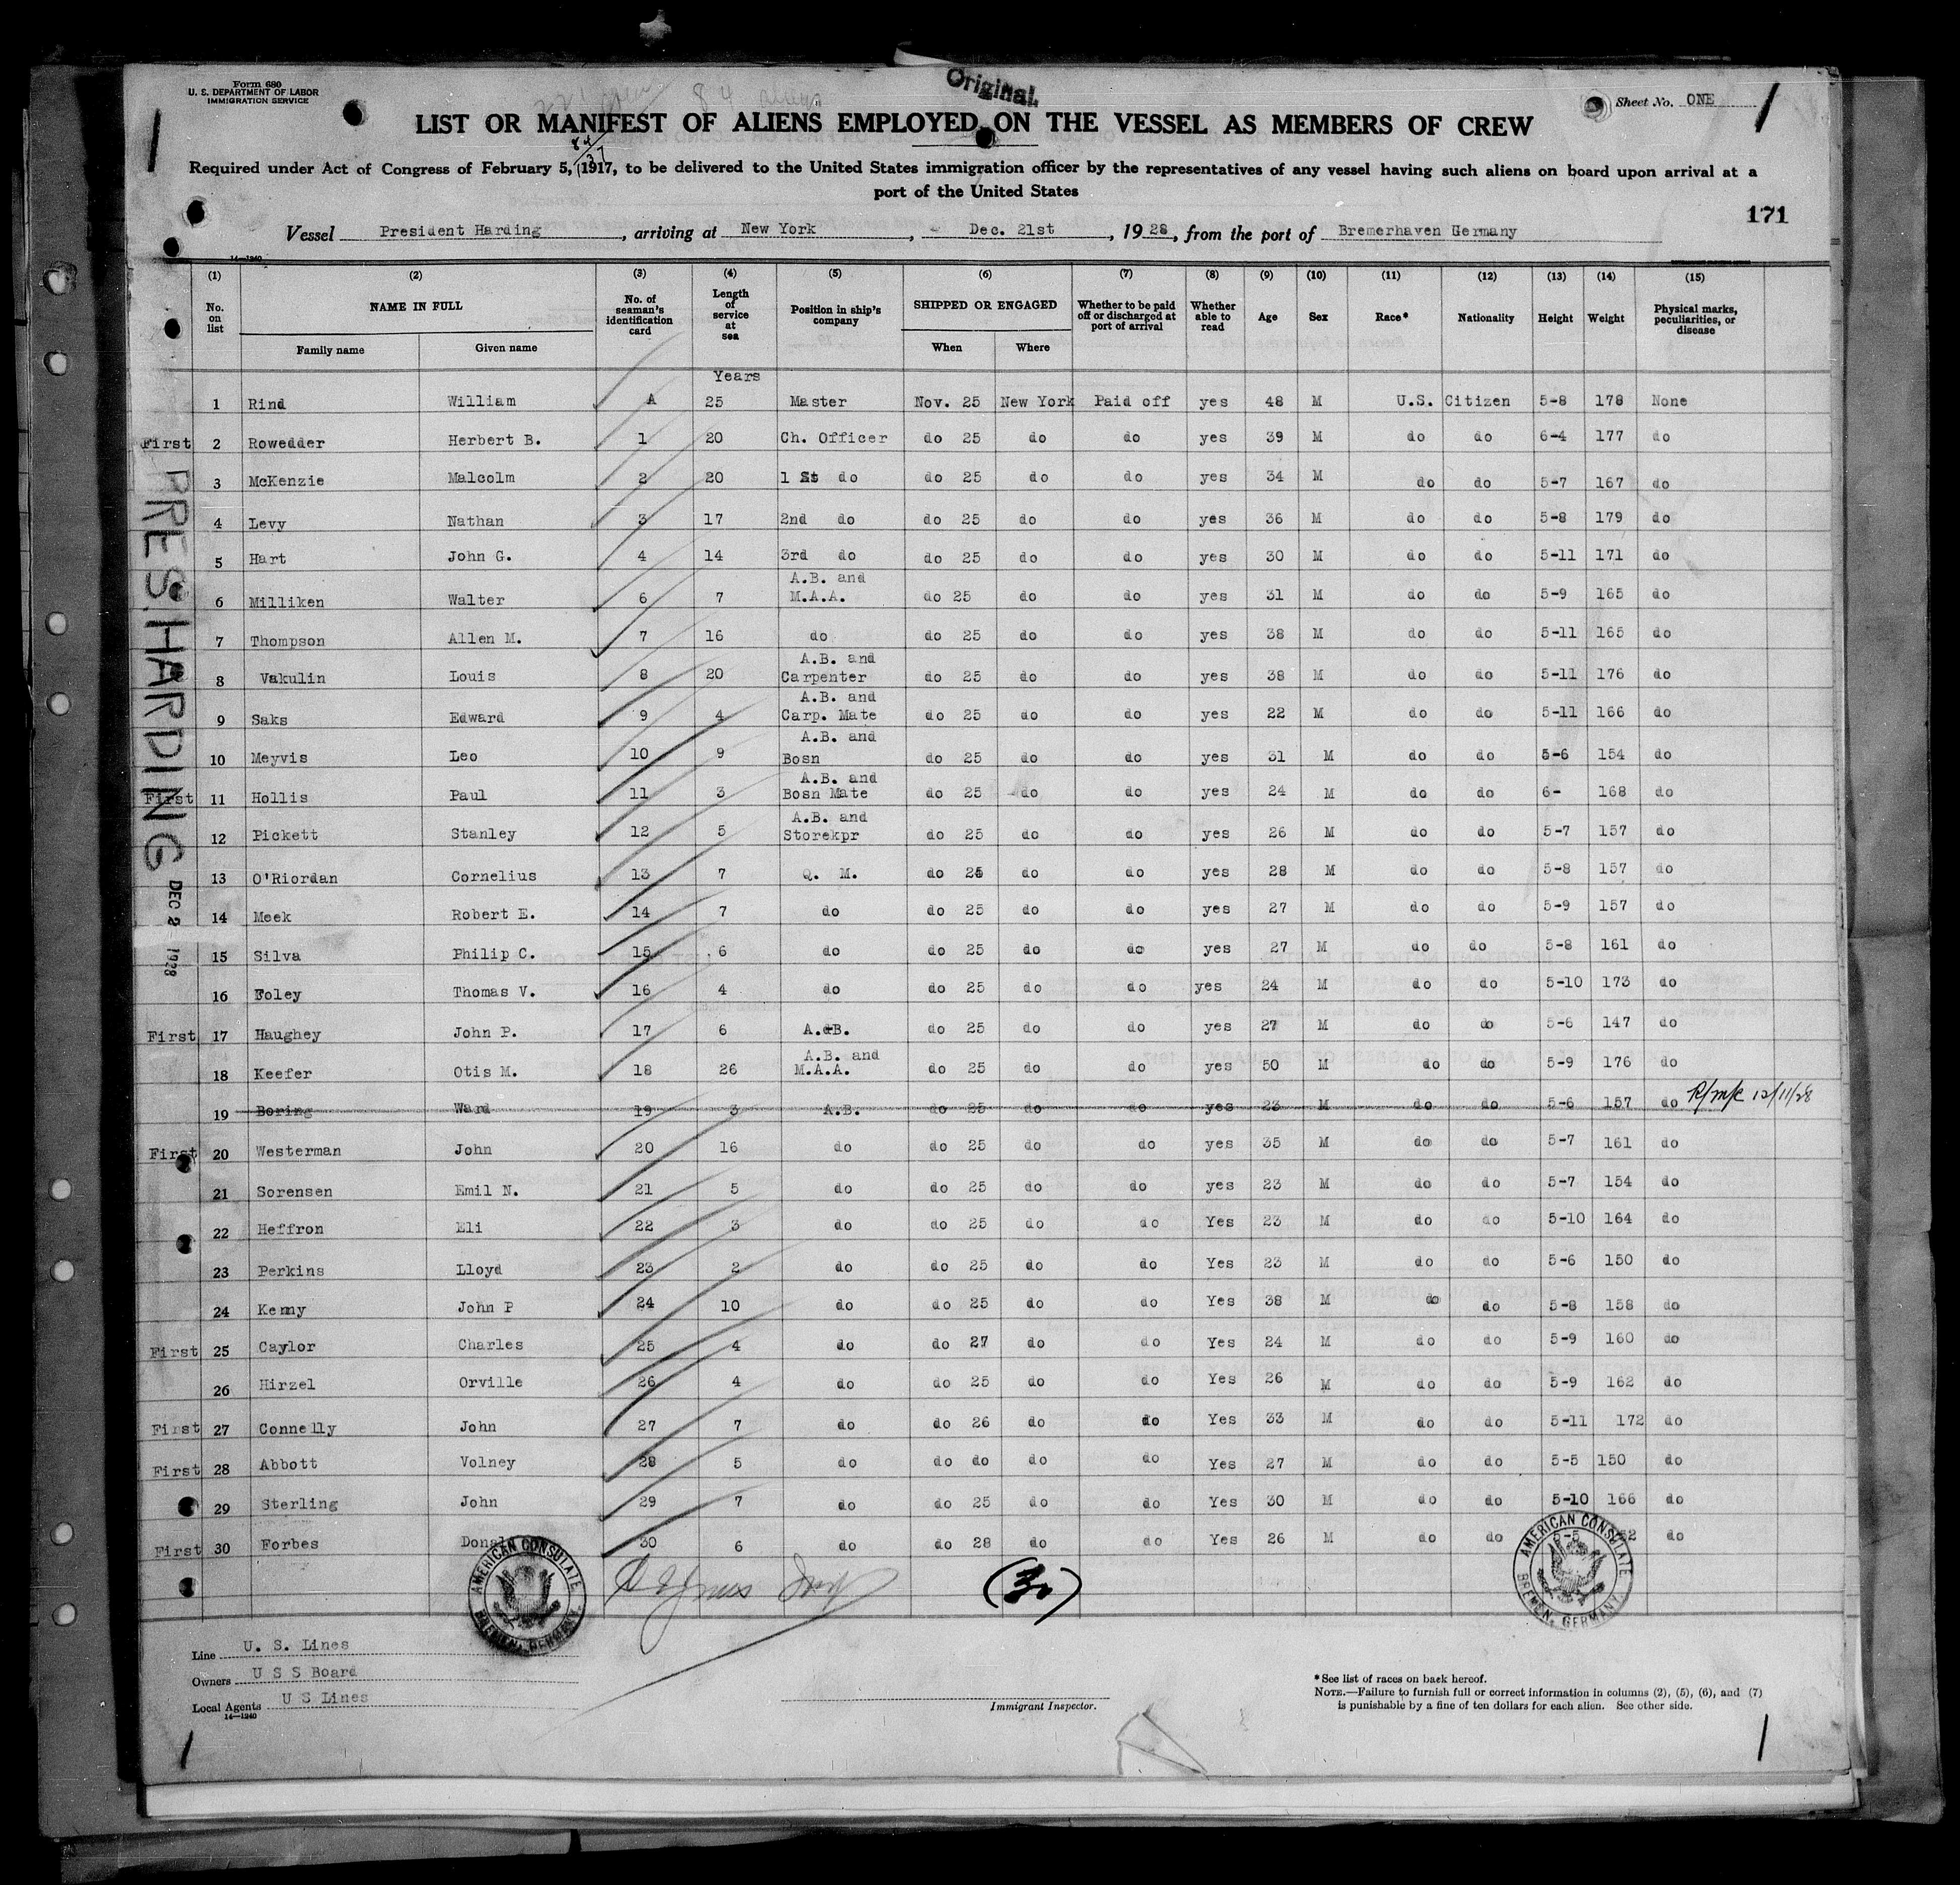 Form 680
U. S. DEPARTMENT OF LABOR
IMMIGRATION SERVICE
84 aliens
Original
Sheet No. ONE
LIST OR MANIFEST OF ALIENS EMPLOYED ON THE VESSEL AS MEMBERS OF CREW
Required under Act of Congress of February 5, 1917, to be delivered to the United States immigration officer by the representatives of any vessel having such aliens on board upon arrival at a
port of the United States
171
Vessel President Harding, arriving at New York, Dec. 21st, 1928, from the port of Bremerhaven Germany
14—1240
(1) (2) (3) (4) (5) (6) (7) (8) (9) (10) (11) (12) (13) (14) (15)
No. on list NAME IN FULL Family name Given name No. of seaman's identification card Length of service at sea Position in ship's company SHIPPED OR ENGAGED When Where Whether to be paid off or discharged at port of arrival Whether able to read Age Sex Race* Nationality Height Weight Physical marks, peculiarities, or disease
Years
1 Rind William A 25 Master Nov. 25 New York Paid off yes 48 M U.S. Citizen 5-8 178 None
First 2 Rowedder Herbert B. 1 20 Ch. Officer do 25 do do yes 39 M do do 6-4 177 do
3 McKenzie Malcolm 2 20 1 St do do 25 do do yes 34 M do do 5-7 167 do
4 Levy Nathan 3 17 2nd do do 25 do do yes 36 M do do 5-8 179 do
5 Hart John G. 4 14 3rd do do 25 do do yes 30 M do do 5-11 171 do
6 Milliken Walter 6 7 A.B. and M.A.A. do 25 do do yes 31 M do do 5-9 165 do
7 Thompson Allen M. 7 16 do do 25 do do yes 38 M do do 5-11 165 do
8 Vakulin Louis 8 20 A.B. and Carpenter do 25 do do yes 38 M do do 5-11 176 do
9 Saks Edward 9 4 A.B. and Carp. Mate do 25 do do yes 22 M do do 5-11 166 do
10 Meyvis Leo 10 9 A.B. and Bosn do 25 do do yes 31 M do do 5-6 154 do
First 11 Hollis Paul 11 3 A.B. and Bosn Mate do 25 do do yes 24 M do do 6- 168 do
12 Pickett Stanley 12 5 A.B. and Storekpr do 25 do do yes 26 M do do 5-7 157 do
13 O'Riordan Cornelius 13 7 Q. M. do 25 do do yes 28 M do do 5-8 157 do
14 Meek Robert E. 14 7 do do 25 do do yes 27 M do do 5-9 157 do
15 Silva Philip C. 15 6 do do 25 do do yes 27 M do do 5-8 161 do
16 Foley Thomas V. 16 4 do do 25 do do yes 24 M do do 5-10 173 do
First 17 Haughey John P. 17 6 A.B. do 25 do do yes 27 M do do 5-6 147 do
18 Keefer Otis M. 18 26 A.B. and M.A.A. do 25 do do yes 50 M do do 5-9 176 do
19 Boring Ward 19 3 A.B. do 25 do do yes 23 M do do 5-6 157 do 12/11/28
First 20 Westerman John 20 16 do do 25 do do yes 35 M do do 5-7 161 do
21 Sorensen Emil N. 21 5 do do 25 do do yes 23 M do do 5-7 154 do
22 Heffron Eli 22 3 do do 25 do do Yes 23 M do do 5-10 164 do
23 Perkins Lloyd 23 2 do do 25 do do Yes 23 M do do 5-6 150 do
24 Kenny John P 24 10 do do 25 do do Yes 38 M do do 5-8 158 do
First 25 Caylor Charles 25 4 do do 27 do do Yes 24 M do do 5-9 160 do
26 Hirzel Orville 26 4 do do 25 do do Yes 26 M do do 5-9 162 do
First 27 Connelly John 27 7 do do 26 do do Yes 33 M do do 5-11 172 do
First 28 Abbott Volney 28 5 do do do do do Yes 27 M do do 5-5 150 do
29 Sterling John 29 7 do do 25 do do Yes 30 M do do 5-10 166 do
First 30 Forbes Donald 30 6 do do 28 do do Yes 26 M do do 5-5 do
PRES. HARDING
DEC 2 1928
(30)
AMERICAN CONSULATE BREMEN, GERMANY
AMERICAN CONSULATE BREMEN, GERMANY
Line U. S. Lines
Owners U S S Board
Local Agents U S Lines
14—1240
Immigrant Inspector.
*See list of races on back hereof.
NOTE.—Failure to furnish full or correct information in columns (2), (5), (6), and (7)
is punishable by a fine of ten dollars for each alien. See other side.